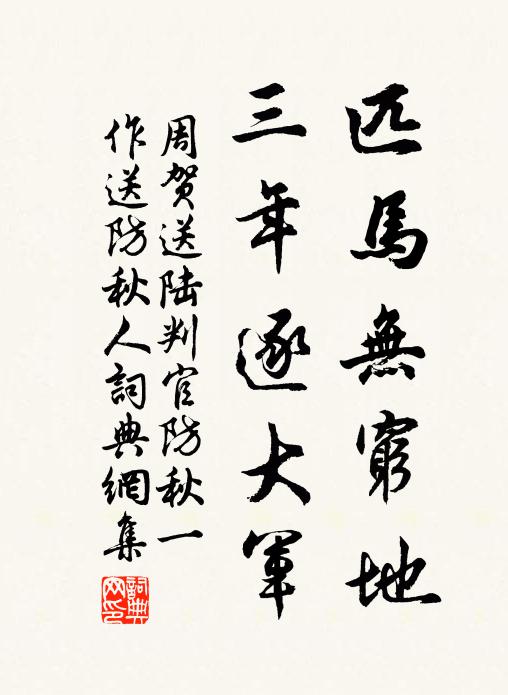 匹馬無窮地
三年逐大軍
周賀送陸判官防秋一
作送防秋人詞典網集
詞典
网印